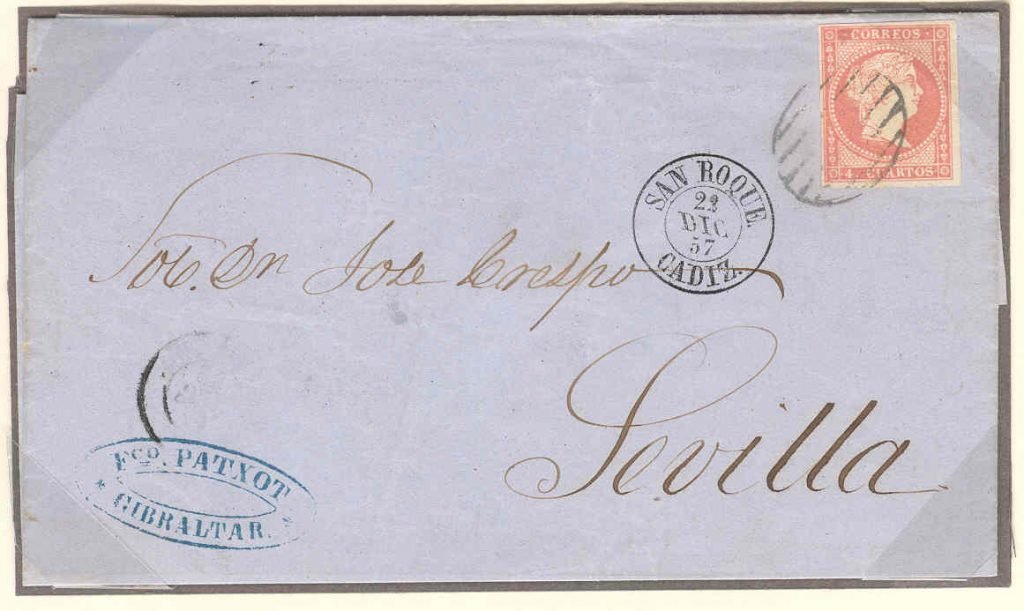 CORREOS
4. CUARTOS
SAN ROQUE
22
DIC
57
CADIZ.
Dn Jose Crespo
Sevilla
Fco. PATXOT
GIBRALTAR.